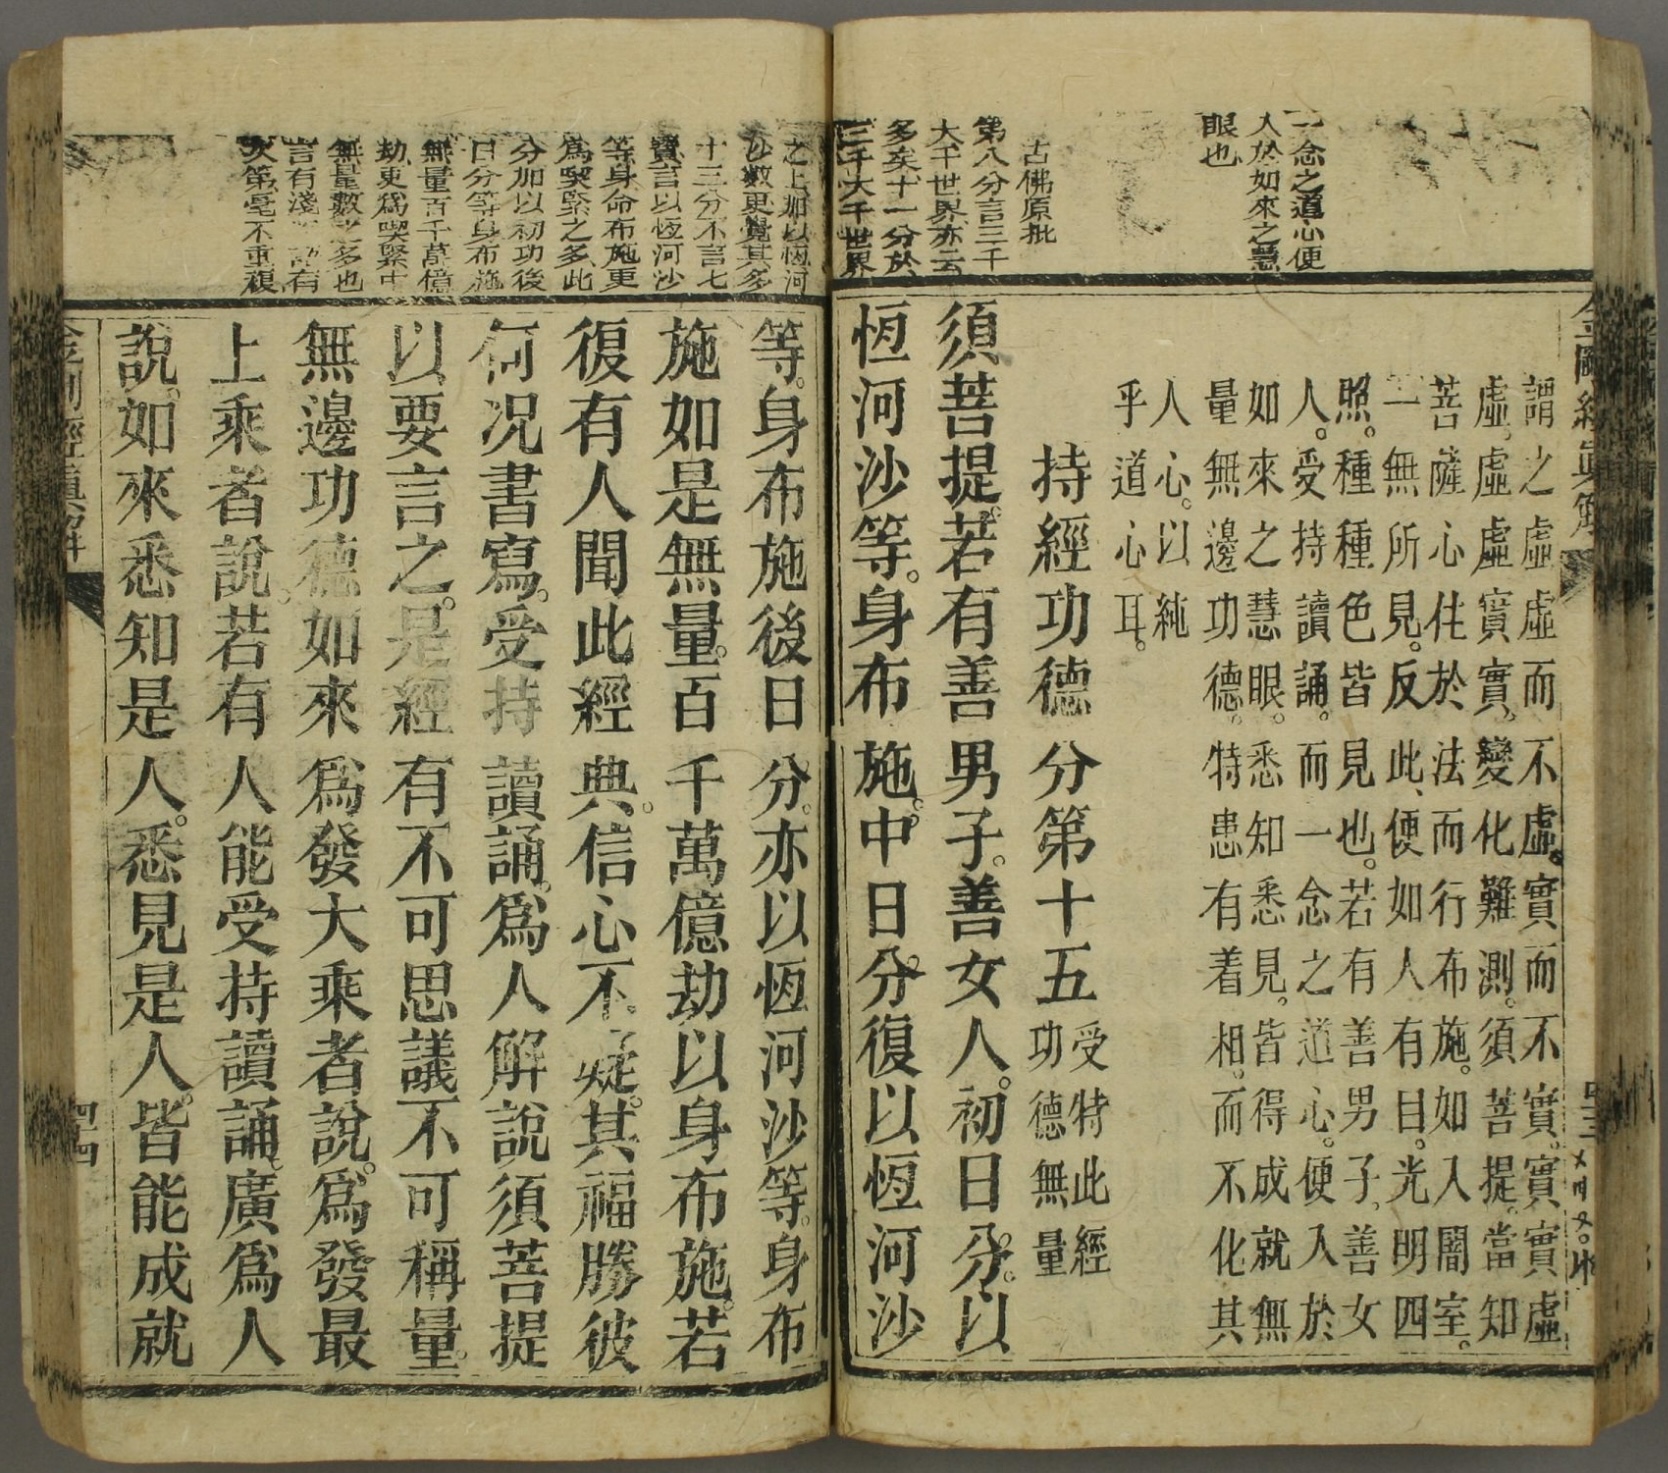 一念之道心便
入於如來之慧
眼也
古佛原批
第八分言三千
大千世界亦云
多矣十一分於
三千大千世界
謂之虛虛而不虛。實而不實。實實虛
虛。虛虛實實。變化難測。須菩提。當知
菩薩心住於法而行布施。如入闇室。
一無所見。反此、便如人有目。光明四
照。種種色皆見也。若有善男子。善女
人。受持讀誦。而一念之道心。便入於
如來之慧眼。悉知悉見。皆得成就無
量無邊功德。特患有着相。而不化其
人心。以純
乎道心耳。
持經功德分第十五 受特此經功德無量
須菩提。若有善男子。善女人。初日分。以
恆河沙等。身布施。中日分。復以恆河沙
四三
之上加以恆河
沙數更覺其多
十三分不言七
寶言以恆河沙
等身命布施更
爲喫緊之多此
分加以初功後
日分等身布施
無量百千萬億
劫更爲喫緊中
無量數之多也
言有淺 有
次第毫不重複
等。身布施後日分。亦以恆河沙等。身布
施如是無量。百千萬億劫以身布施。若
復有人聞此經典。信心不疑。其福勝彼
何况書寫。受持讀誦。爲人解說須菩提
以要言之。是經有不可思議不可稱量。
無邊功德如來爲發大乘者說。爲發最
上乘者說。若有人能受持讀誦。廣爲人
說。如來悉知是人。悉見是人。皆能成就
金剛經眞解
四四